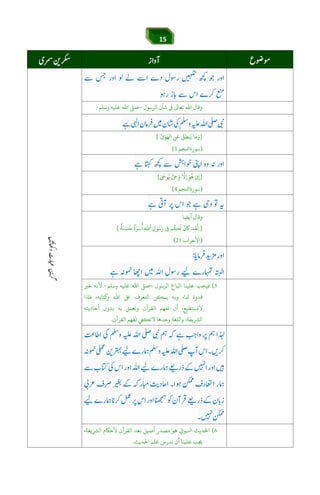 15
موضوع
آواز
سکرین سمری
اور جو کچھ تمہیں رسول دے اسے لو اور جس سے
منع کرے اس سے باز رہو
وقال الله تعالى في شأن الرسول -صلى الله عليه وسلم-
نبی صلی اللہ علیہ وسلم کی شان میں فرمان الہی ہے
{وَمَا يَنطِقُ عَنِ الْهَوَىٰ}
(سورةالنجم 3)
اور نہ وہ اپنی خواہش سے کچھ کہتا ہے
{إِنْ هُوَ إِلَّا وَحْيٌ يُوحَىٰ}
(سورةالنجم 4)
یہ تو وحی ہے جو اس پر آتی ہے
وقال أيضا
{ لَّقَدْ كَانَ لَكُمْ فِي رَسُولِ اللَّهِ أُسْوَةٌ حَسَنَةٌ }
(الأحزاب 21)
اور مزید فرمایا:
البتہ تمہارے لیے رسول اللہ میں اچھا نمونہ ہے
5) فيجب علينا اتباع الرسول -صلى الله عليه وسلم- لأنه خير
قدوة لنا، وبه يمكن التعرف على الله وكتابه، فلذا
لانستطيع، أن نفهم القرآن ونعمل به بدون أحاديثه
الشريفة، واللغة وحدها لاتكفي لفهم القرآن.
لہذا ہم پر واجب ہے کہ ہم نبی صلی اللہ علیہ وسلم کی اطاعت
کریں۔ اس آپ صلی اللہ علیہ وسلم ہمارے لیے بہترین عملی نمونہ
ہیں اور انہیں کے ذریعے ہمارے لیے اللہ اور اس کی کتاب سے
ہمارا تعارف ممکن ہوا۔ احادیث مبارکہ کے بغیر صرف عربی
زبان کے ذریعے قرآن کو سمجھنا اور اس پر عمل کرنا ہمارے لیے
ممکن نہیں۔
6) الحديث النبوي هو مصدر أصيل بعد القرآن لأحكام الشريعة،
يجب علينا أن ندرس علم الحديث.